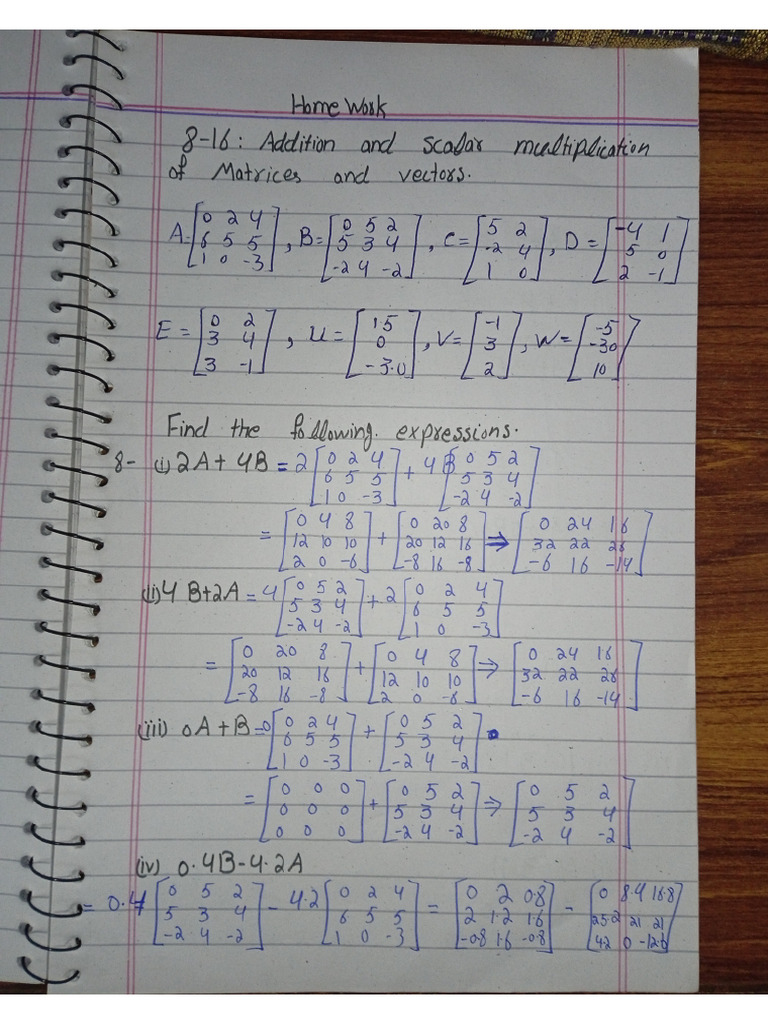 Home Work
8-16: Addition and scalar multiplication
of Matrices and vectors.
A=[0 2 4; 6 5 5; 1 0 -3], B=[0 5 2; 5 3 4; -2 4 -2], C=[5 2; -2 4; 1 0], D=[-4 1; 5 0; 2 -1]
E=[0 2; 3 4; 3 -1], U=[1.5; 0; -3.0], V=[-1; 3; 2], W=[-5; -30; 10]
Find the following expressions.
8- (i) 2A + 4B = 2[0 2 4; 6 5 5; 1 0 -3] + 4[0 5 2; 5 3 4; -2 4 -2]
= [0 4 8; 12 10 10; 2 0 -6] + [0 20 8; 20 12 16; -8 16 -8] ⇒ [0 24 16; 32 22 26; -6 16 -14]
(ii) 4B+2A = 4[0 5 2; 5 3 4; -2 4 -2] + 2[0 2 4; 6 5 5; 1 0 -3]
= [0 20 8; 20 12 16; -8 16 -8] + [0 4 8; 12 10 10; 2 0 -6] ⇒ [0 24 16; 32 22 26; -6 16 -14]
(iii) 0A+B = 0[0 2 4; 6 5 5; 1 0 -3] + [0 5 2; 5 3 4; -2 4 -2]
= [0 0 0; 0 0 0; 0 0 0] + [0 5 2; 5 3 4; -2 4 -2] ⇒ [0 5 2; 5 3 4; -2 4 -2]
(iv) 0.4B-4.2A
= 0.4[0 5 2; 5 3 4; -2 4 -2] - 4.2[0 2 4; 6 5 5; 1 0 -3] = [0 2 0.8; 2 1.2 1.6; -0.8 1.6 -0.8] - [0 8.4 16.8; 25.2 21 21; 4.2 0 -12.6]